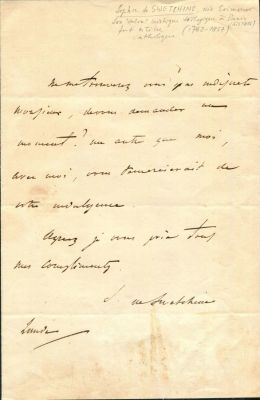 Sophie de SWETCHINE, née Soïmonoff
Son salon mystique à Paris
fut très
catholique (1782-1857)
ne me trouverez vous pas indiscrète
Monsieur, de vous demander un
moment? un autre que moi,
avec moi, vous remercierait de
votre indulgence.
Agréez je vous prie tous
mes compliments.
S. de Swetchine
Lundi